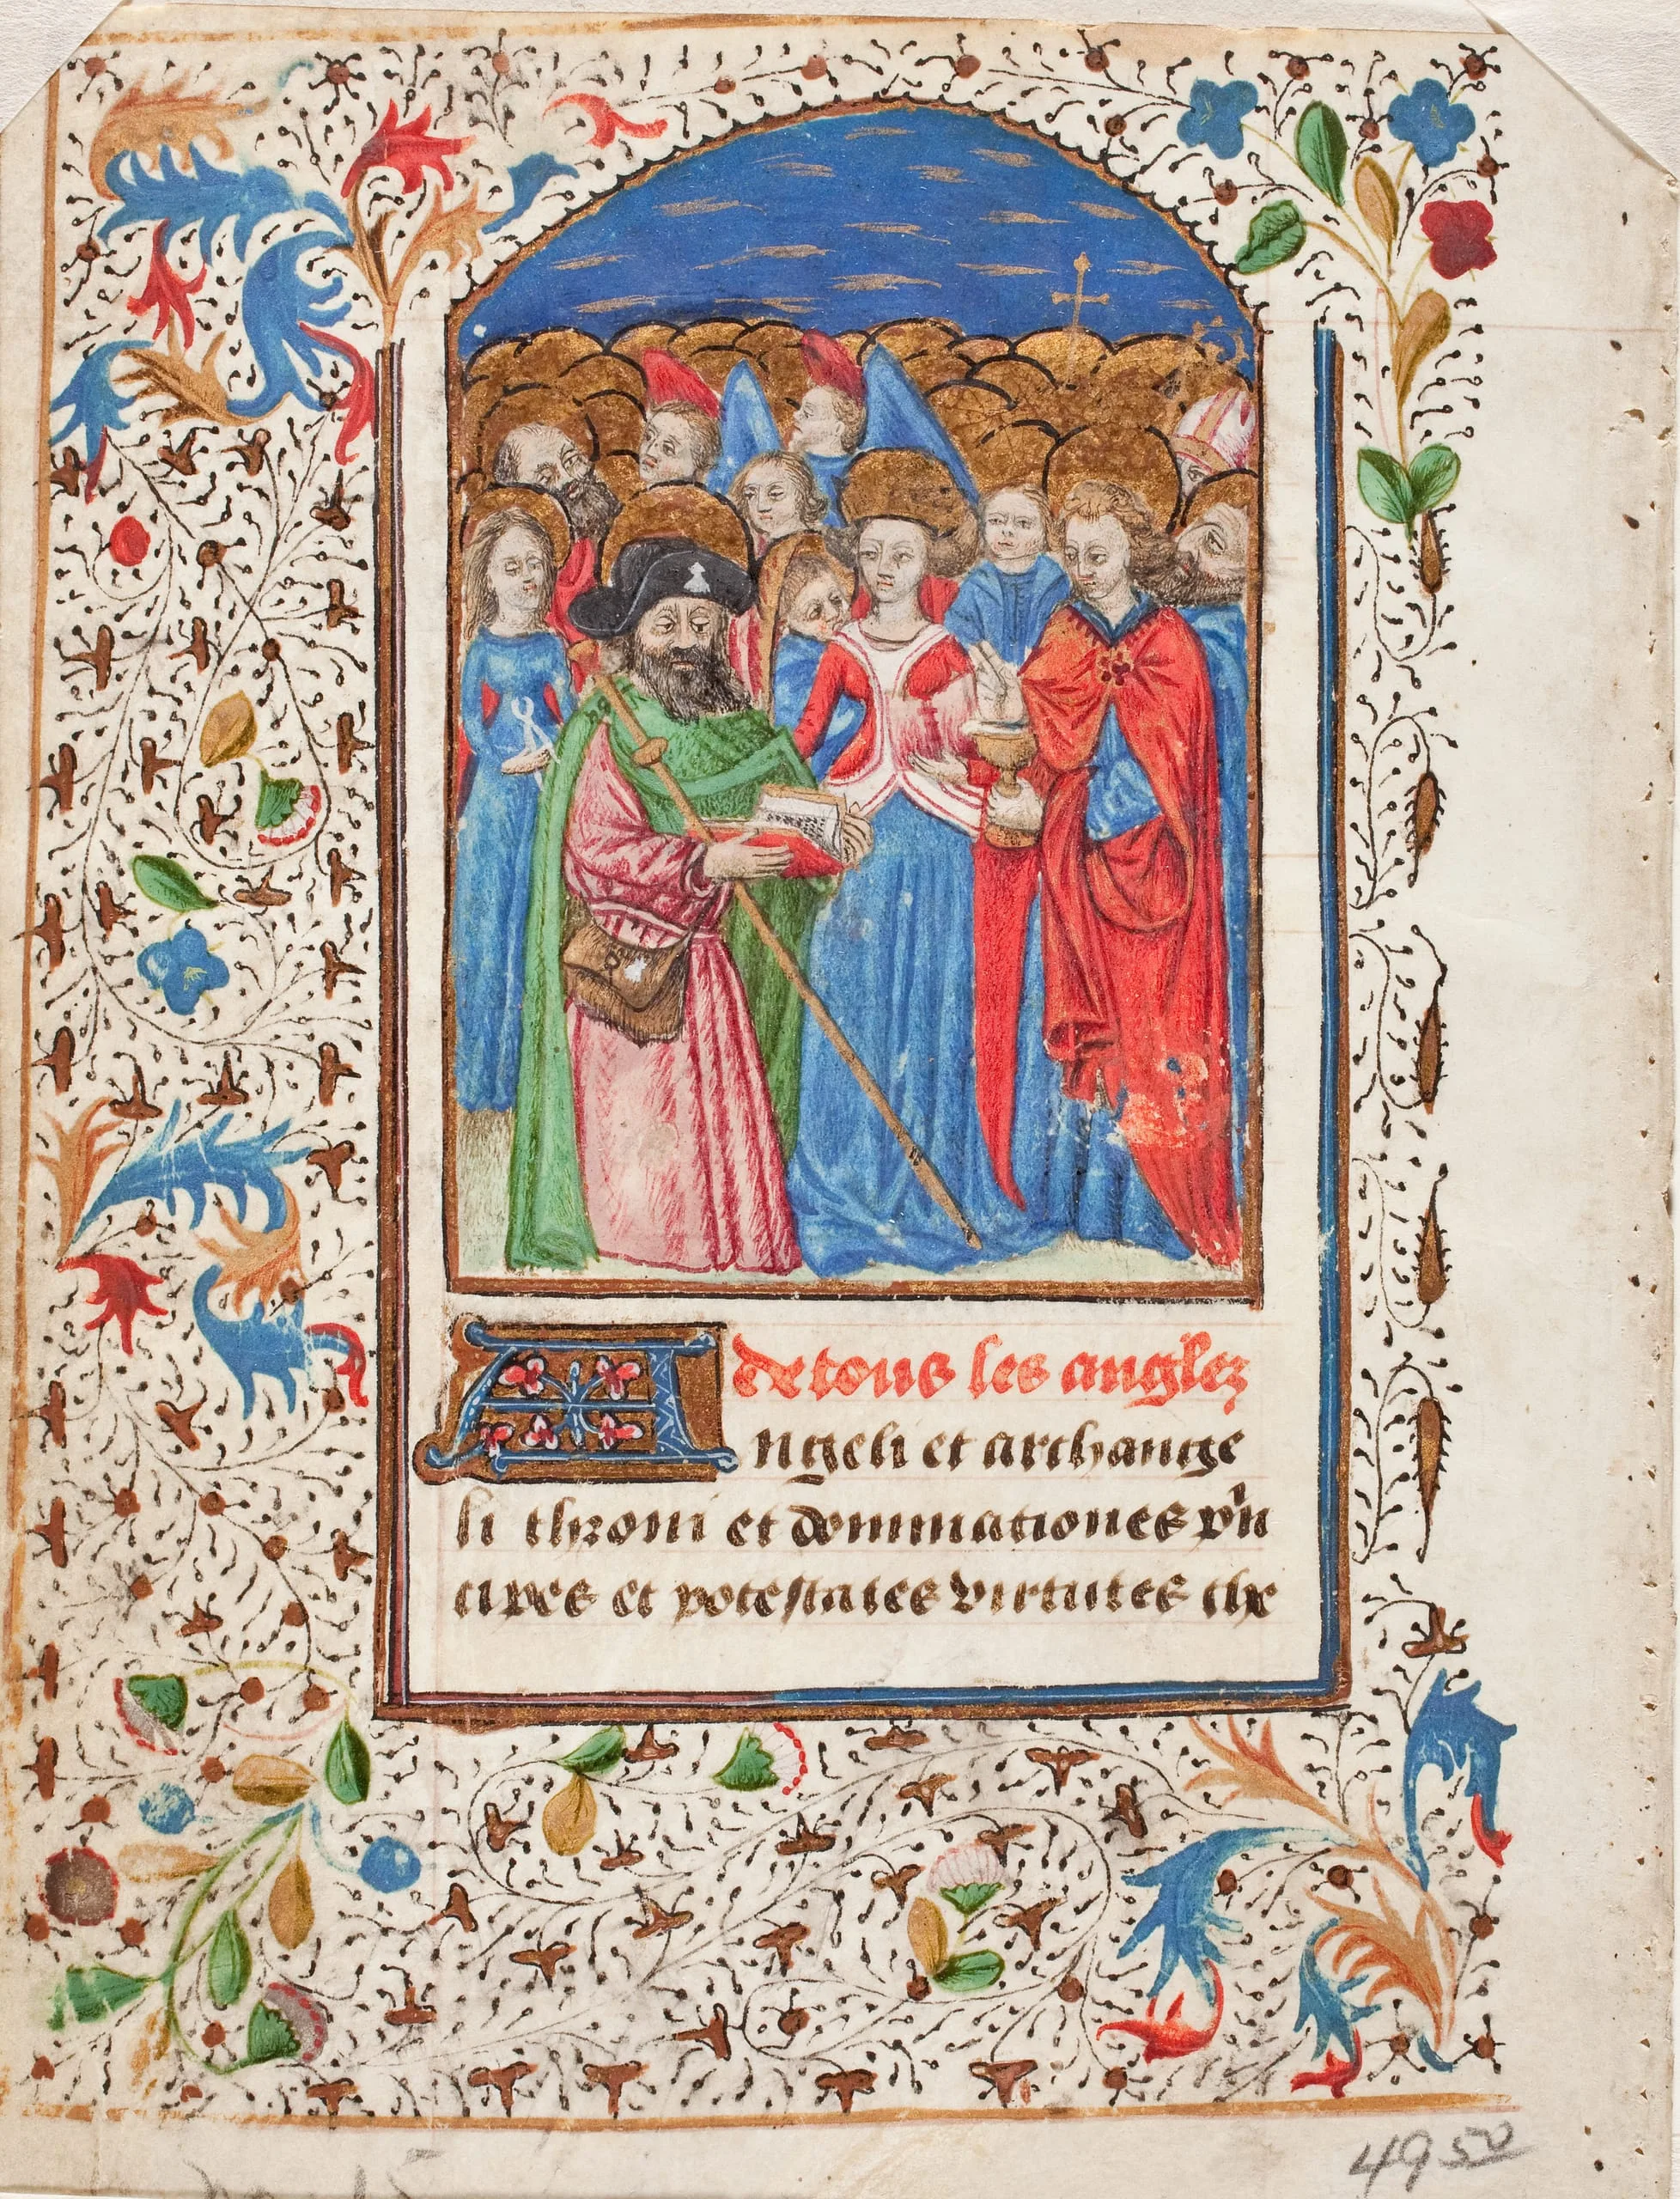 de tous les anglez
Angeli et archange
li throni et dominationes prin
cipes et potestates virtutes che
4950